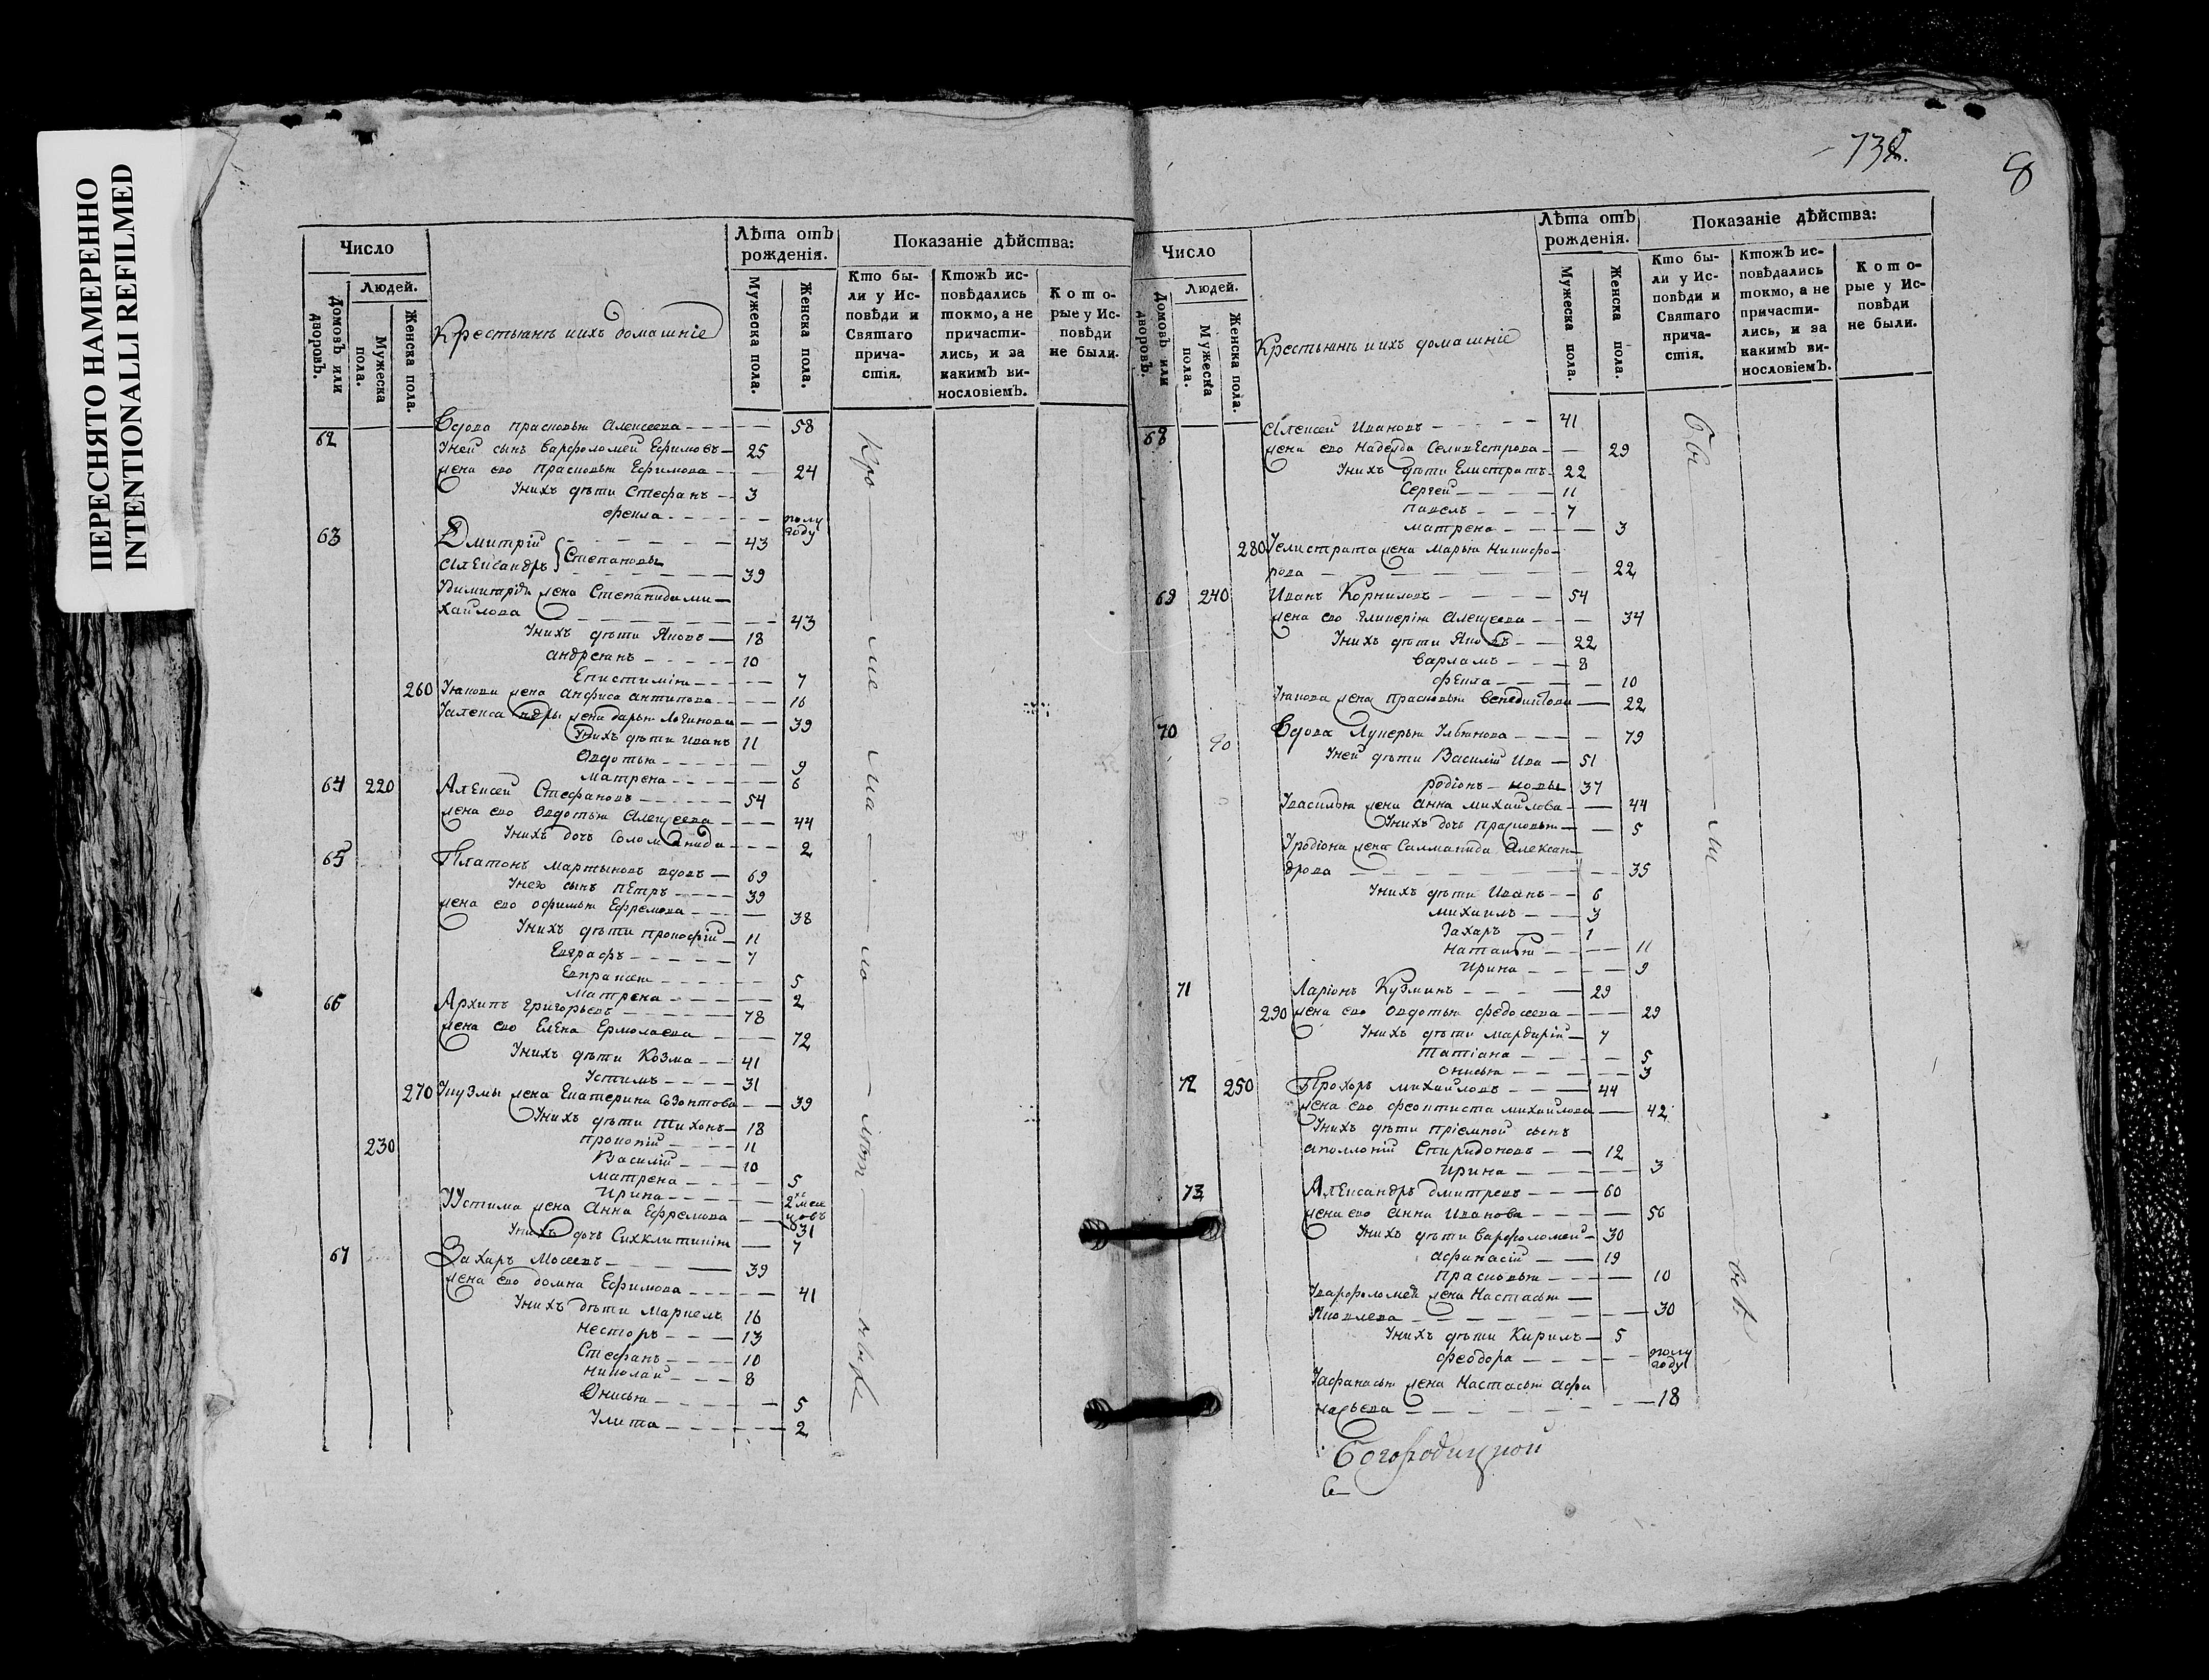 ПЕРЕСНЯТО НАМЕРЕННО
INTENTIONALLI REFILMED
Число
Людей.
Домовъ или дворовъ.
Мужеска пола.
Женска пола.
Крестьянъ иихъ домашніе
Лѣта отъ рожденія.
Мужеска пола.
Женска пола.
Показаніе дѣйства:
Кто бы-
ли у Ис-
повѣди и
Святаго
прича-
стія.
Ктожъ ис-
повѣдались
токмо, а не
причасти-
лись, и за
какимъ ви-
нословіемъ.
Кото-
рые у Ис-
повѣди
не были.
62 Вдова прасковья Алексеева 58
Уней сынъ варфоломей Ефимовъ 25
жена ево прасковья Ефимова 24
Унихъ дѣти Стефанъ 3
фекла полу году
63 Дмитрій 43
Александръ Степановы 39
Удимитрія жена Степанида ми-
хайлова 43
Унихъ дѣти Яковъ 18
андреянъ 10
Епистимія 7
260 Уякова жена анфиса антипова 16
Уалександры жена дарья Логинова 39
Унихъ дѣти иванъ 11
Овдотья 9
матрена 6
64 220 Алексей Стефановъ 54
жена ево овдотья Алексеева 44
Унихъ дочь Соломанида 2
65 Платонъ мартыновъ вдовъ 69
Унего сынъ пЕтръ 39
жена ево офимья Ефремова 38
Унихъ дѣти прокофій 11
Евграфъ 7
Евпраксия 5
матрена 2
66 Архипъ григорьевъ 78
жена ево Елена Ермолаева 72
Унихъ дѣти Козма 41
Устимъ 31
270 Укузмы жена Екатерина Созонтова 39
Унихъ дѣти тихонъ 18
230 прокопій 11
Василій 10
матрена 5
Ирина 2хъ меся цовъ
УУстима жена Анна Ефремова 31
Унихъ дочь Сихклитикія 7
67 Захаръ Мосеевъ 39
жена ево домна Ефимова 41
Унихъ дѣти Маркелъ 16
несторъ 13
Стефанъ 10
николай 8
Онисья 5
Улита 2
738.
8
Число
Людей.
Домовъ или дворовъ.
Мужеска пола.
Женска пола.
Крестьянъ иихъ домашніе
Лѣта отъ рожденія.
Мужеска пола.
Женска пола.
Показаніе дѣйства:
Кто бы-
ли у Ис-
повѣди и
Святаго
прича-
стія.
Ктожъ ис-
повѣдались
токмо, а не
причасти-
лись, и за
какимъ ви-
нословіемъ.
Кото-
рые у Ис-
повѣди
не были.
68 Алексей Ивановъ 41
жена ево надежда СеливЕстрова 29
Унихъ дѣти Елистратъ 22
Сергей 11
павелъ 7
матрена 3
280 Уелистрата жена Марья Никифо-
рова 22
69 240 Иванъ Корниловъ 54
жена ево Гликерія Алексеева 34
Унихъ дѣти Яковъ 22
варламъ 8
фекла 10
Уякова жена прасковья венедиктова 22
70 Вдова Лукерья Ульянова 79
Уней дѣти Василій Ива 51
родіонъ новы 37
Увасилья жена анна михайлова 44
Унихъ дочь прасковья 5
Уродіона жена Салманида Алексан-
дрова 35
Унихъ дѣти Иванъ 6
михаилъ 3
Захаръ 1
наталья 11
Ирина 9
71 Ларіонъ Кузминъ 29
290 жена ево овдотья федосеева 29
Унихъ дѣти мардарій 7
татіана 5
онисья 3
72 250 Прохоръ михайловъ 44
жена ево феоктиста михайлова 42
Унихъ дѣти пріемной сынъ
аполлоній Спиридоновъ 12
Ирина 3
73 Александръ дмитревъ 60
жена ево анна Иванова 56
Унихъ дѣти варфоломей 30
афанасій 19
прасковья 10
Уварфоломея жена Настасья
Яковлева 30
Унихъ дѣти Кирилъ 5
феодора полу году
Уафанасья жена Настасья афа
насьева 18
Богородицкой